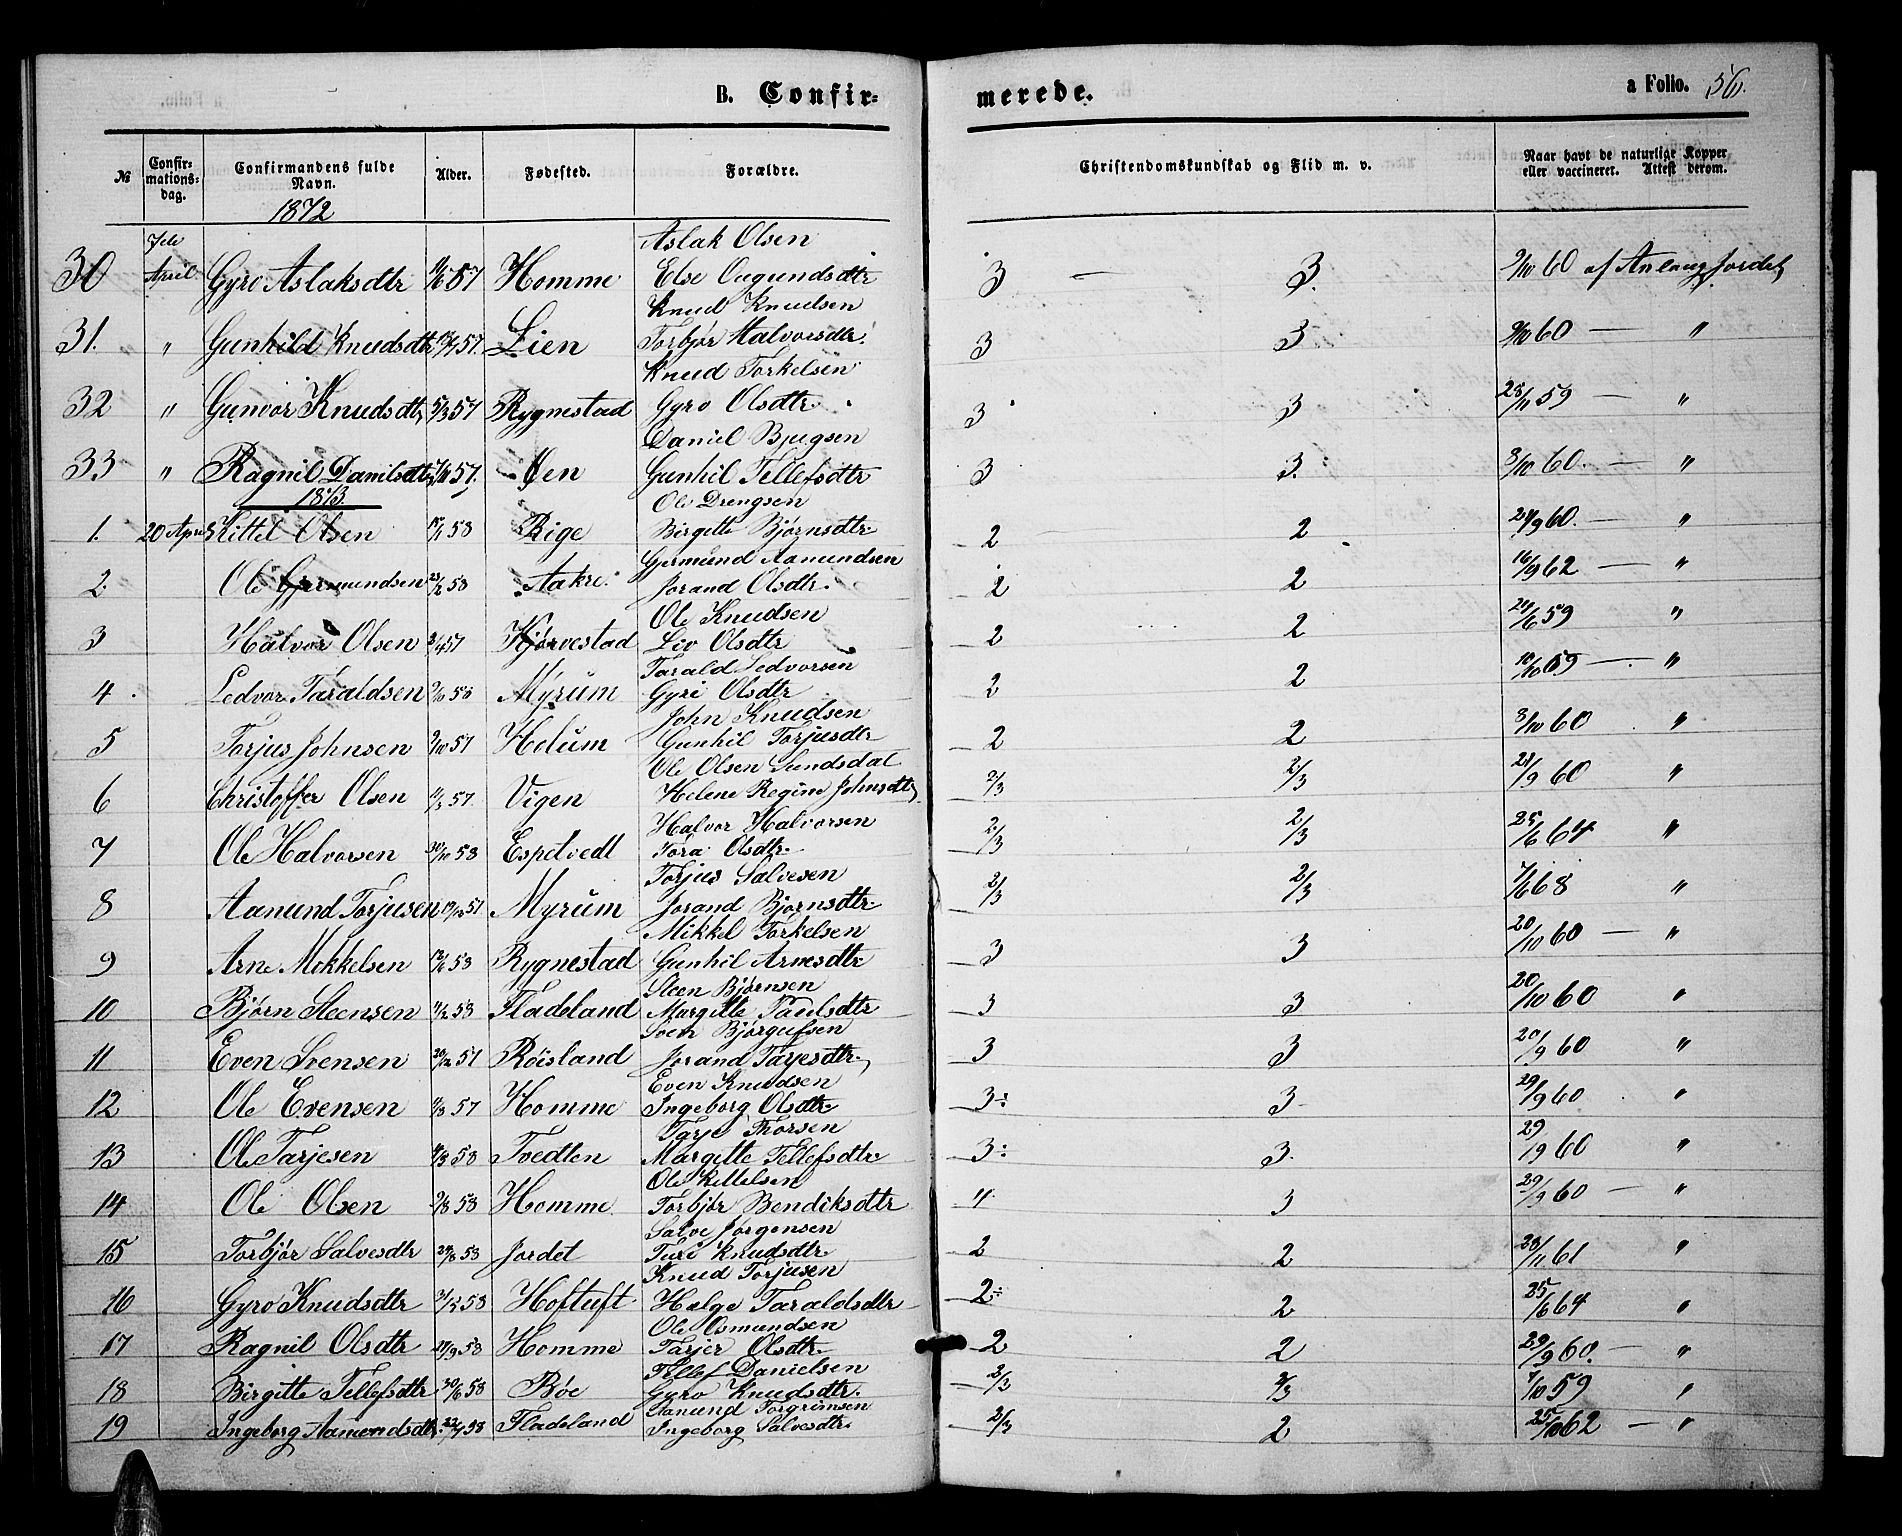 B. Confir- merede. a Folio. 56.
№ Confir-mations-dag. Confirmandens fulde Navn. Alder. Fødested. Forældre. Christendomskundskab og Flid m. v. Naar havt de naturlige Kopper eller vaccineret. Attest derom.
1872
7de Aslak Olsen
30 April Gyro Aslaksdtr 57 Homme Else Ougundsdtr 3 — 3. 9/10 60 af
Knud Knudsen
31. " Gunhild Knudsdtr 57. Lien Torbjør Halvorsdtr. 3 3 9/10 60 — "
Knud Torkelsen
32 " Gunvor Knudsdtr 5/3 57 Rygnestad Gyro Olsdtr. 3 3 28/11 59 — "
Daniel Bjugsen
33 " Ragnil Danilsdtr 57. Gunhil Tellefsdtr 3 3. 8/10 60. — "
1873. Ole Drengsen
1. 20 April Kittel Olsen 58 Rige Birgitte Bjørnsdtr. 2 2 60. — "
Gjermund Aamundsen
2. Ole Gjermundsen 58 Aakre. Jorand Olsdtr. 2 2 16/9 62 — "
Ole Knudsen
3 Halvor Olsen 57 Kjørvestad Liv Olsdtr 2 2 59 "
Tarald Ledvorsen
4 Ledvor Taraldsen 58 Myrum Gyri Olsdtr 2 2 59 — "
John Knudsen
5 Torjus Johnsen 9/10 57 Helum Gunhil Torjusdtr 2 2 8/10 60 "
Ole Olsen Sundsdal
6 Christoffer Olsen 57. Vigen Helene Regine Johnsdtr 2/3 2/3 60 "
Halvor Halvorsen
7 Ole Halvorsen 30/10 58 Espetvedt Tora Olsdtr. 2/3 2/3 25/6 64 "
Torjus Salvesen
8 Aanund Torjusen 57 Myrum Jorand Bjørnsdtr. 2/3 2/3 7/6 68 "
Mikkel Torkelsen
9 Arne Mikkelsen 58 Rygnestad Gunhil Arnesdtr 3 3 20/10 60 — "
Steen Bjørnsen
10 Bjørn Steensen 58 Fladeland Margitte Paulsdtr 3 3 20/10 60 "
Svein Bjørgufsen
11 Even Svensen 57 Røisland Jorand Tarjesdtr. 3 3 20/9 60 "
Even Knudsen
12 Ole Evensen 57 Homme Ingeborg Olsdtr. 3÷ 3 29/9 60 "
Tarje Thorsen
13 Ole Tarjesen 58 Tvedten Margitte Tellefsdtr. 3÷ 3. 29/9 60 "
Ole Kittelsen
14 Ole Olsen 58 Homme Torbjør Bendiksdtr 4. 3 29/9 60 — "
Salve Jørgensen
15 Torbjør Salvesdtr 58 Jordet Turi Knudsdtr. 2 2 28/11 61 "
Knud Torjusen
16 Gyro Knudsdtr 58 Hoftuft Hælge Taraldsdtr 2÷ 2 25/6 64 "
Ole Osmundsen
17 Ragnil Olsdtr 58 Homme Tarjer Olsdtr. 2 2 29/9 60. — "
Tellef Danielsen
18 Birgitte Tellefsdtr 30/6 58 Bøe Gyro Knudsdtr. 2/3 2/3 7/10 59 "
Aanund Torgrimsen
19 Ingeborg Aamundsdtr. 58 Fladeland Ingeborg Salvesdtr. 2/3 2 25/10 62 — "